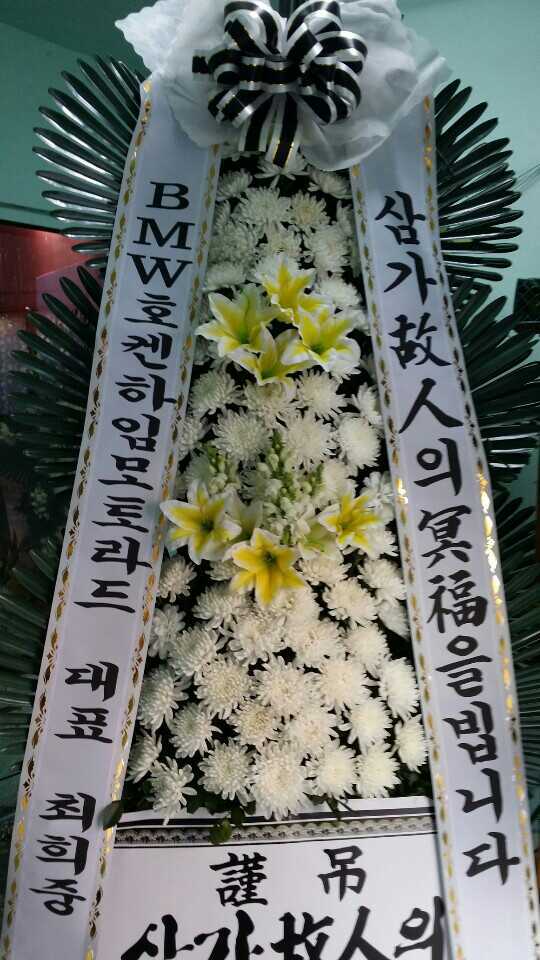 삼가故人의冥福을빕니다
BMW호켄하임모토라드 대표 최희중
謹 吊
삼가故人의